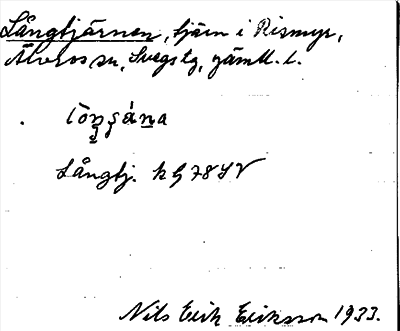 Långtjärnen, tjärn i Rismyr,
Älvros sn, Svegs tg, Jämtl. l.
Långtj. k G 78 SV
Nils Erik Eriksson 1933.